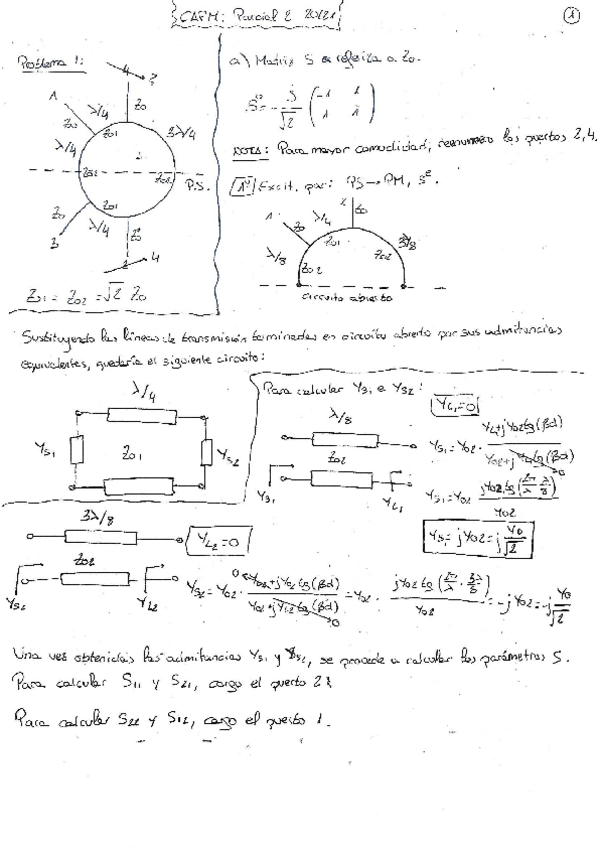 CAFM: Parcial 2 20/21
1
Problema 1:
4
2
1
λ/4
Z0
Z0
Z01
3λ/4
λ/4
Z02
Z02
P.S.
Z01
Z0
λ/4
Z0
3
4
Z01 = Z02 = √2 Z0
a) Matriz S referida a Z0.
-j/√2 ( -1 1
1 1 )
NOTA: Para mayor comodidad, renumero los puertos 2,4.
1º Excit. par: PS → PM, Sᵉ.
1
Z0
λ/4
Z0
Z01
λ/8
Z02
Z02
3λ/8
circuito abierto
Sustituyendo las líneas de transmisión terminadas en circuito abierto por sus admitancias
equivalentes, quedaría el siguiente circuito:
λ/4
YS1
Z01
YS2
Para calcular YS1 e YS2:
YL1=0
λ/8
Z02
YS1
YL1
YS1= Y02 · YL+jY02tg(βd) / Y02+j YLtg(βd)
0
YS1= Y02 jY02tg(2π/λ · λ/8) / Y02
YS1= jY02 = j Y0/√2
3λ/8
YL2=0
Z02
YS2
YL2
YS2 = Y02 · YL2+jY02 tg(βd) / Y02+jYL2 tg(βd) = Y02 · jY02 tg(2π/λ · 3λ/8) / Y02 = -jY02 = -j Y0/√2
Una vez obtenidas las admitancias YS1 y YS2, se procede a calcular los parámetros S.
Para calcular S11 y S21, cargo el puerto 2
Para calcular S22 y S12, cargo el puerto 1.